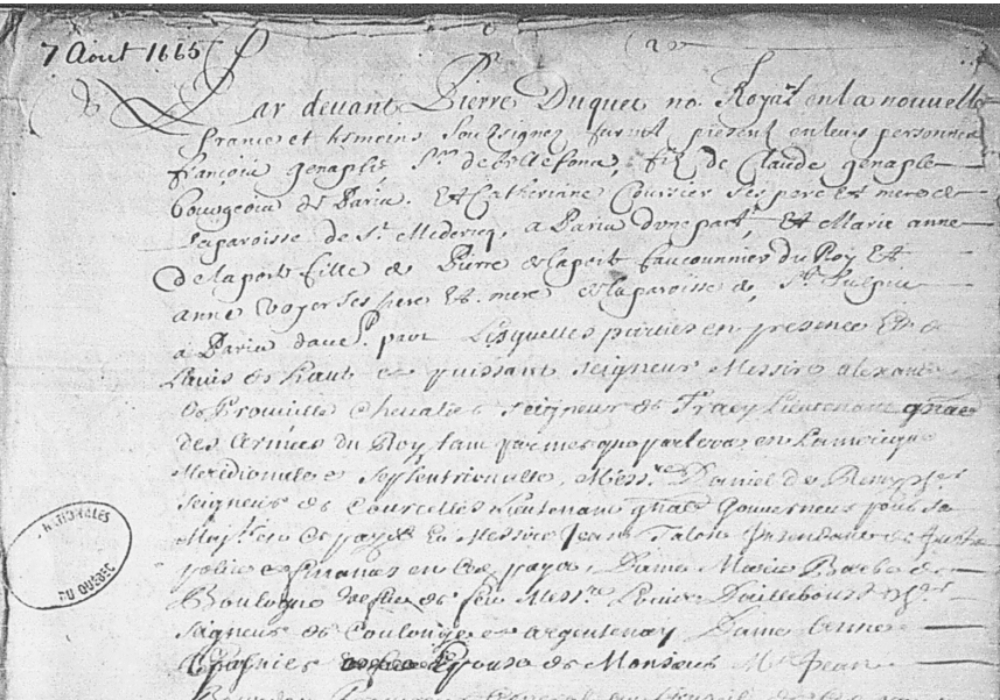 7 Aout 1665
Par devant Pierre Duquet no. Royal en la nouvelle
france et tesmoins soussignez furent present en leurs personnes
françois genaple Sr de bellefond, filz de Claude genaple
bourgeois de Paris. Et Catherine Coursier ses pere et mere de
la paroisse de St. Medericq, a Paris dune part, Et Marie anne
de laporte fille de Pierre de laporte fauconnier du Roy Et
anne Voyer ses pere Et mere de la paroisse de St Sulpice
a Paris dau. part Lesquelles parties en presence Et de
Lauis de haut et puissant seigneur Messire alexandre
de Prouville Chevalier seigneur de Tracy Lieutenant gnal
des armées du Roy tant par mer que par terre en Lamerique
Meridionale et septentrionalle, Messre Daniel de Remy
seigneur de Courcelles Lieutenant gnal Gouverneur pour sa
Majté en ce pays Et Messire Jean Talon Intendant de Justice
police et finances en ce pays, Dame Marie Barbe de
Boulogne vefve de feu Messre Louis Dailleboust
seigneur de Coulonge et argentenay Dame anne
Epouse de Monsieur Jean
Bourdon Procureur General au Conseil
NATIONALES
DU QUÉBEC